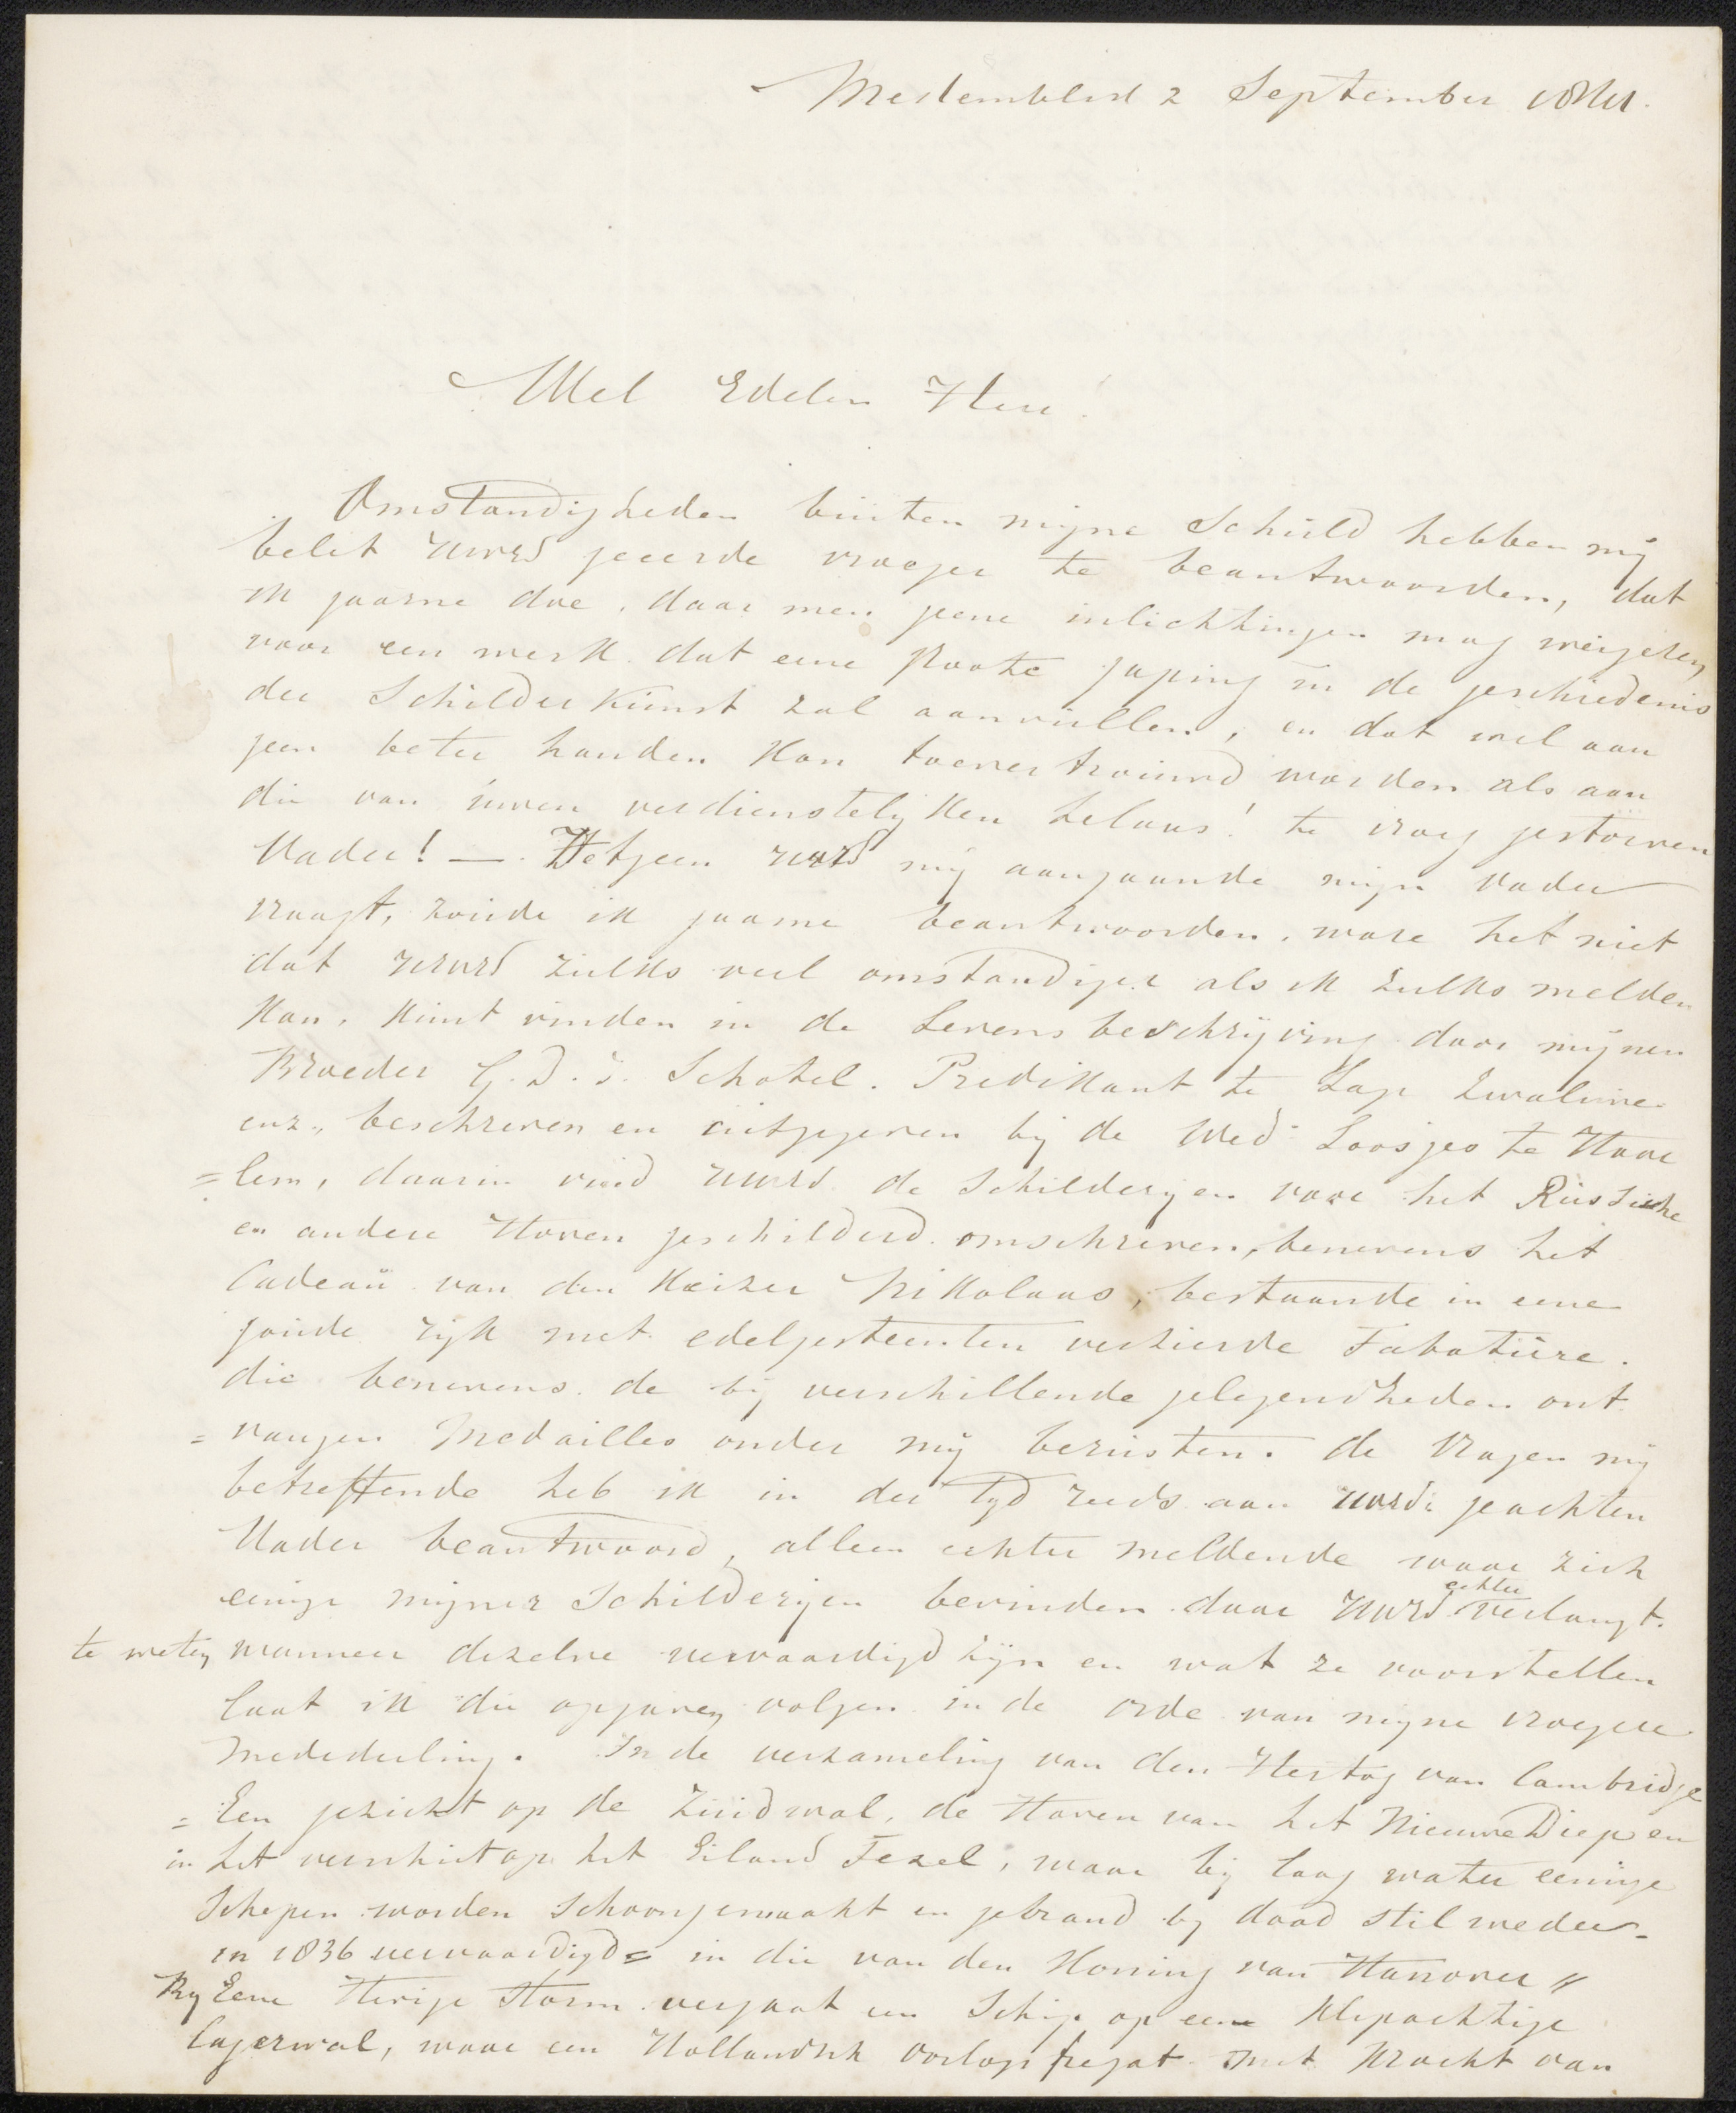 Medemblik 2 September 1841.
Wel Edelen Heer!
Omstandigheden buiten mijne Schuld hebben mij
belet UwEd geeerde vroeger te beantwoorden, dat
ik gaarne doe, daar men geene inlichtingen mag weigeren
voor een werk dat eene groote gaping in de geschiedenis
der Schilderkunst zal aanvullen, en dat wel aan
geen beter handen kon toevertrouwd worden als aan
die van uwen verdienstelijken helaas! te vroeg gestorven
Vader! — Hetgeen UwEd mij aangaande mijn Vader
vraagt, zoude ik gaarne beantwoorden, ware het niet
dat UwEd zulks veel omstandiger als ik zulks melden
kan, kunt vinden in de Levensbeschrijving door mijnen
Broeder G.D.J. Schotel. Predikant te Lage Zwaluwe
enz., beschreven en uitgegeven bij de Wed Loosjes te Haar
=lem, daarin vind UwEd de Schilderijen voor het Russische
en andere Hoven geschilderd omschreven, benevens het
Cadeau van den Keizer Nikolaas, bestaande in eene
goude rijk met edelgesteenten verzierde Tabatière.
die benevens de bij verschillende gelegendheden ont
=vangen Medailles onder mij berusten. de Vragen mij
betreffende heb ik in der tijd reeds aan UwEds geachten
Vader beantwoord, alleen echter meldende waar zich
eenige mijner Schilderijen bevinden daar UwEd echter verlangt.
te weten wanneer dezelve vervaardigd zijn en wat ze voorstellen
laat ik die opgaven volgen in de orde van mijne vroegere
mededeeling. In de verzameling van den Hertog van Cambridge
= Een gezicht op de Zuidwal, de Haven van het NieuweDiep en
in het verschiet op het Eiland Texel, waar bij laag water eenige
Schepen worden Schoongemaakt en gebrand bij dood stil weder
in 1836 vervaardigd = in die van den Koning van Hanover "
By Eene Hevige Storm vergaat een Schip op eene Klipachtige
lagerwal, waar een Hollandsch oorlogs fregat met kracht van